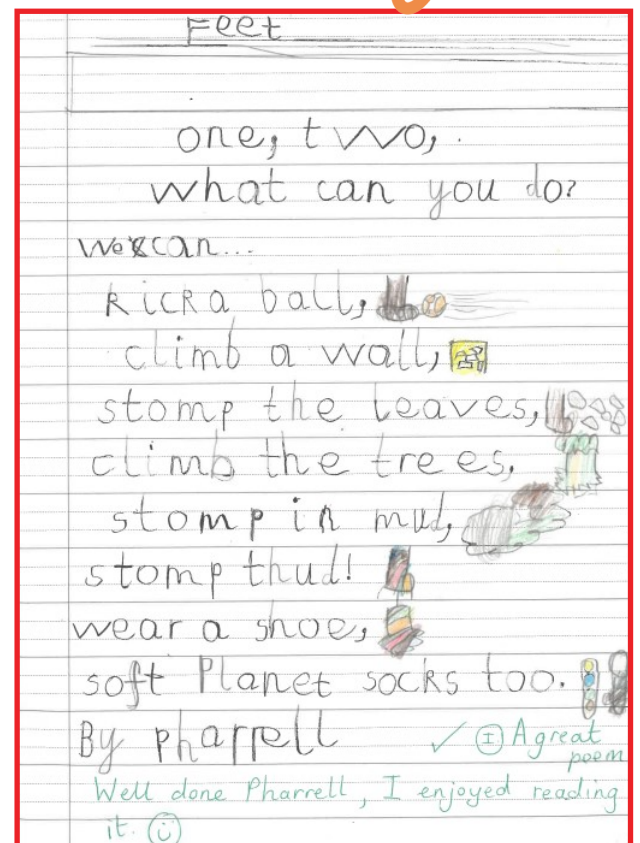 Feet
one, two,
what can you do?
We can...
kick a ball,
climb a wall,
stomp the leaves,
climb the trees,
stomp in mud,
stomp thud!
wear a shoe,
soft Planet socks too.
By pharrell
✓ I A great
poem
Well done Pharrell, I enjoyed reading
it. ☺